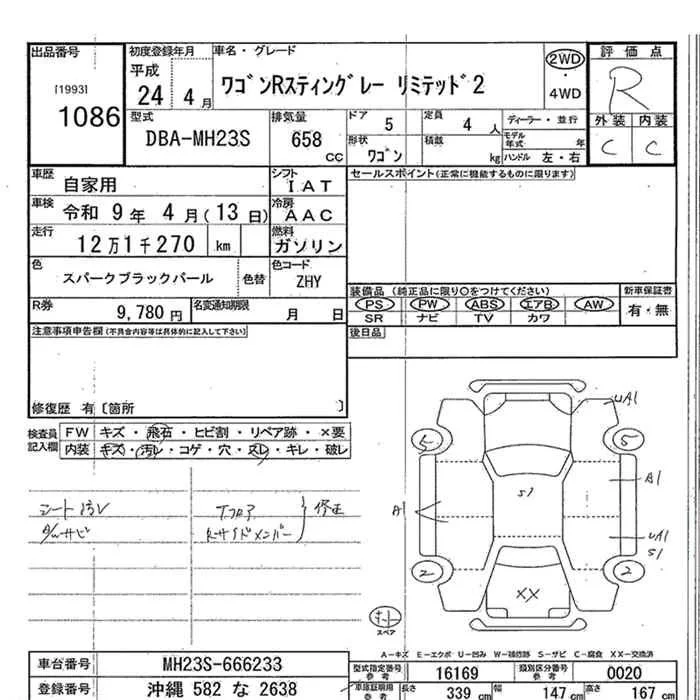 出品番号 初度登録年月 車名・グレード 評価点
[1993] 平成 2WD R
1086 24 4月 ワゴンRスティングレー リミテッド2 ・ 4WD
型式 排気量 ドア 5 定員 4人 ディーラー・並行 外装 内装
DBA-MH23S 658 CC 形状 ワゴン 積載 kg モデル年式 年 C C
ハンドル 左・右
車歴 自家用 シフト IAT セールスポイント(正常に機能するものに限ります)
車検 令和 9年 4月(13日) 冷房 AAC
走行 12万1千270 km 燃料 ガソリン
色 スパークブラックパール 色替 色コード ZHY
装備品 (純正品に限り○をつけてください) 新車保証書
R券 9,780円 名変通知期限 月 日 PS PW ABS エアB AW 有・無
SR ナビ TV カワ
注意事項申告欄(不具合内容等は具体的に記入して下さい) 後日品
修復歴 有〔箇所 〕
検査員記入欄 FW キズ・飛石・ヒビ割・リペア跡・×要
内装 キズ・汚レ・コゲ・穴・スレ・キレ・破レ
UA1
5 5
A1
S1
A1
シート
Tフロア 修正
サビ
Rサイドメンバー
UA1
S1
2 2
XX
スペア
A-キズ E-エクボ U-凹み W-補修跡 S-サビ C-腐食 XX-交換済
車台番号 MH23S-666233 型式指定番号 参考 16169 類別区分番号 参考 0020
登録番号 沖縄 582 な 2638 車庫証明用 参考 長さ 339 cm 幅 147 cm 高さ 167 cm